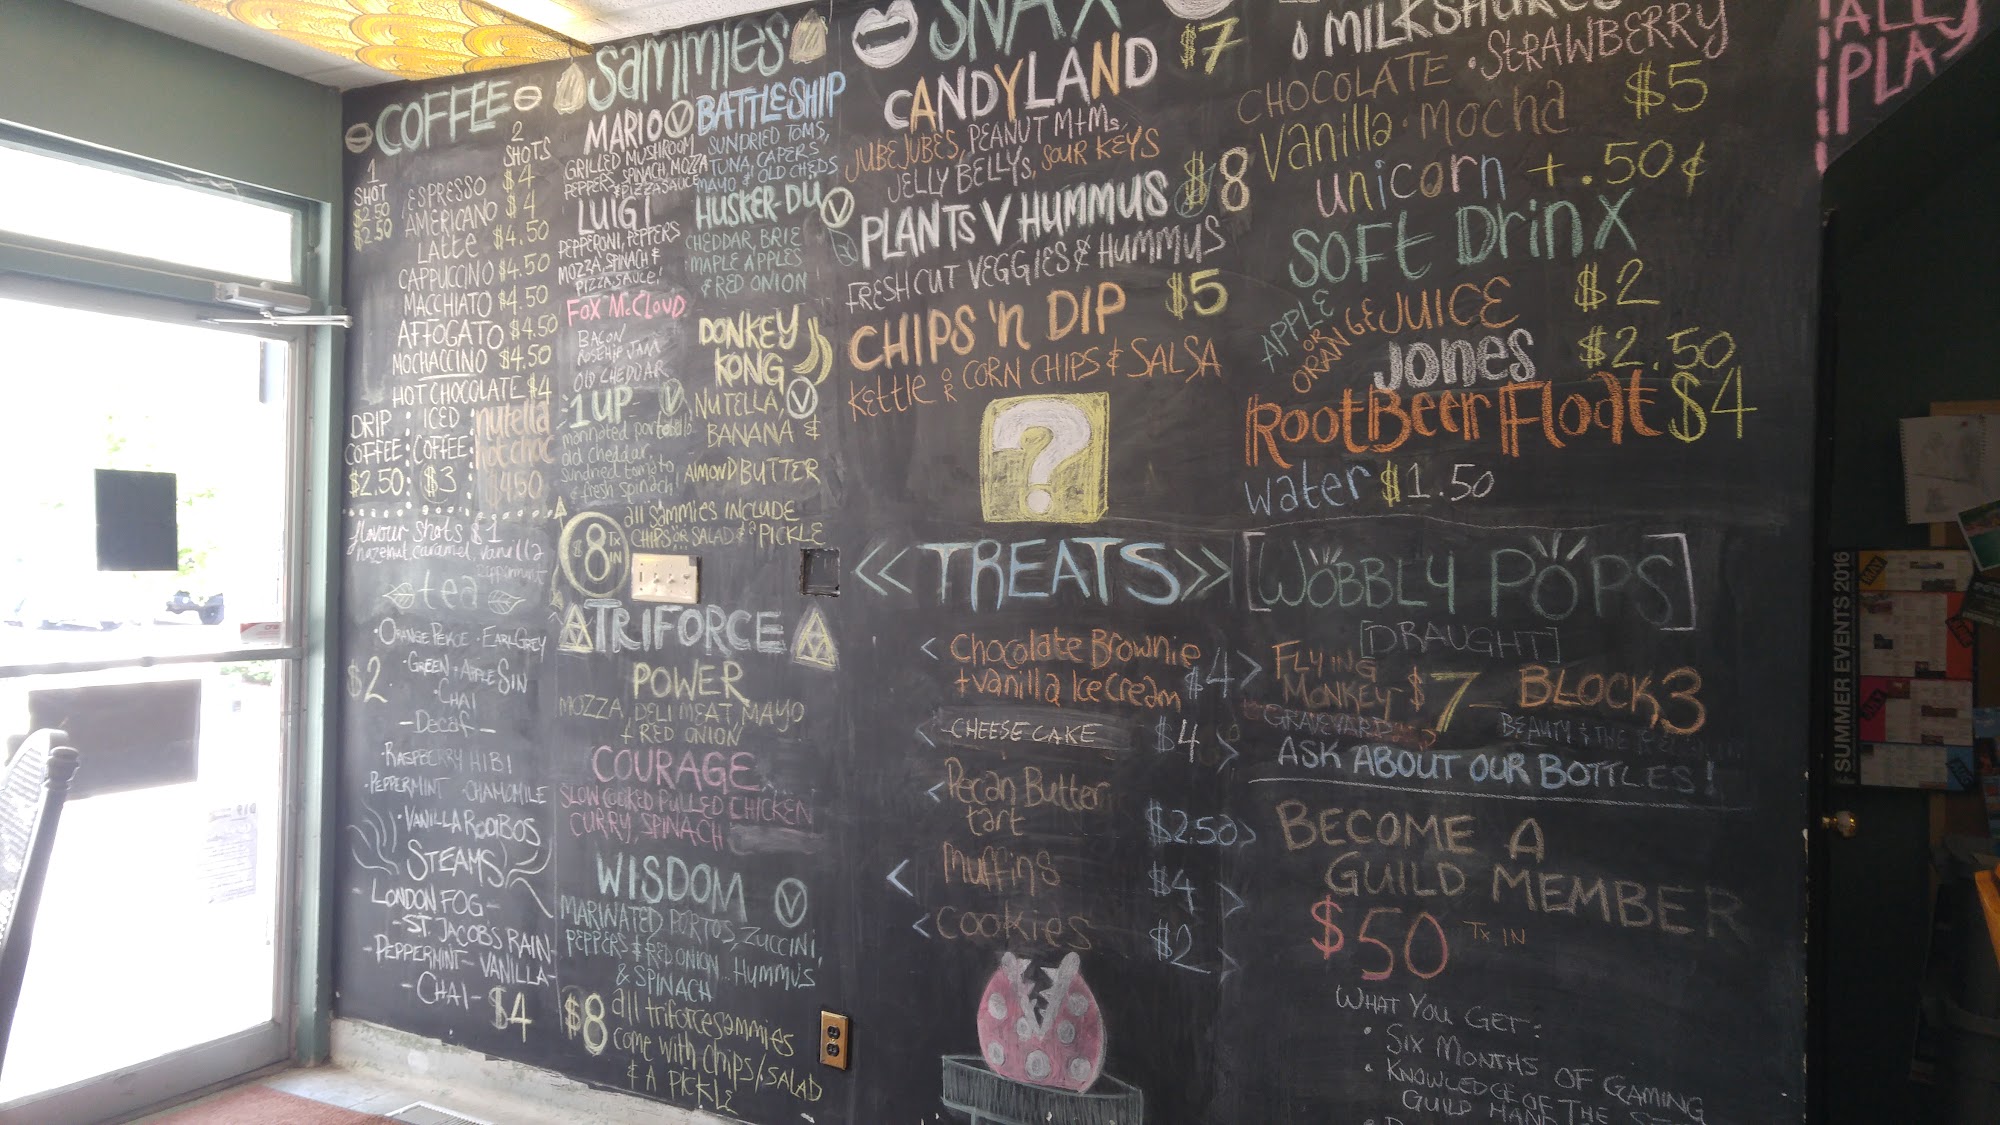 COFFEE
1 SHOT
2 SHOTS
$2.50 ESPRESSO $4
$2.50 AMERICANO $4
LATTE $4.50
CAPPUCCINO $4.50
MACCHIATO $4.50
AFFOGATO $4.50
MOCHACCINO $4.50
HOT CHOCOLATE $4
DRIP COFFEE $2.50
ICED COFFEE $3
nutella hot choc $4.50
flavour shots $1
hazelnut, caramel, vanilla
peppermint
tea
$2
• ORANGE PEKOE • EARL GREY
• GREEN + APPLE SIN
• CHAI
- Decaf -
• RASPBERRY HIBI
• PEPPERMINT • CHAMOMILE
• VANILLA ROOIBOS
STEAMS
- LONDON FOG -
- ST. JACOB'S RAIN -
- PEPPERMINT - VANILLA -
- CHAI - $4
Sammies
MARIO V
GRILLED MUSHROOM
PEPPERS, SPINACH, MOZZA
& PIZZA SAUCE
LUIGI
PEPPERONI, PEPPERS
MOZZA, SPINACH &
PIZZA SAUCE!
FOX McCLOUD
BACON
ROSEHIP JAM
OLD CHEDDAR
1UP V
marinated portobello
old cheddar,
sundried tomato
& fresh spinach
BATTLESHIP
SUNDRIED TOMS,
TUNA, CAPERS
MAYO & OLD CHEDS
HUSKER-DU V
CHEDDAR, BRIE
MAPLE APPLES
& RED ONION
DONKEY
KONG V
NUTELLA,
BANANA &
ALMOND BUTTER
$8 TX IN
all sammies INCLUDE
CHIPS OR SALAD & a PICKLE
TRIFORCE
POWER
MOZZA, DELI MEAT, MAYO
+ RED ONION
COURAGE
SLOW COOKED PULLED CHICKEN
CURRY, SPINACH
WISDOM V
MARINATED PORTOS, ZUCCINI,
PEPPERS & RED ONION.. HUMMUS
& SPINACH
$8 all triforce sammies
come with chips/SALAD
& A PICKLE
SNAX
CANDYLAND $7
JUBEJUBES, PEANUT M+Ms,
JELLY BELLYS, SOUR KEYS
PLANTS V HUMMUS $8
FRESH CUT VEGGIES & HUMMUS
CHIPS 'n DIP $5
KETTLE OR CORN CHIPS & SALSA
?
<<TREATS>>
< Chocolate Brownie
+ vanilla Ice Cream $4 >
< CHEESE CAKE $4 >
< Pecan Butter
tart $2.50 >
< Muffins $4 >
< Cookies $2 >
MILKSHAKES
CHOCOLATE • STRAWBERRY
Vanilla • mocha $5
unicorn + .50¢
SOFT DrinX
APPLE OR ORANGE JUICE $2
JONES $2.50
RootBeer Float $4
water $1.50
[WOBBLY POPS]
[DRAUGHT]
FLYING
MONKEY $7 - BLOCK 3
GRAVEYARD
BEAUTY & THE
ASK ABOUT OUR BOTTLES!
BECOME A
GUILD MEMBER
$50 TX IN
WHAT YOU GET:
• SIX MONTHS OF GAMING
• KNOWLEDGE OF THE
GUILD
ALL
PLAY
SUMMER EVENTS 2016
MAY